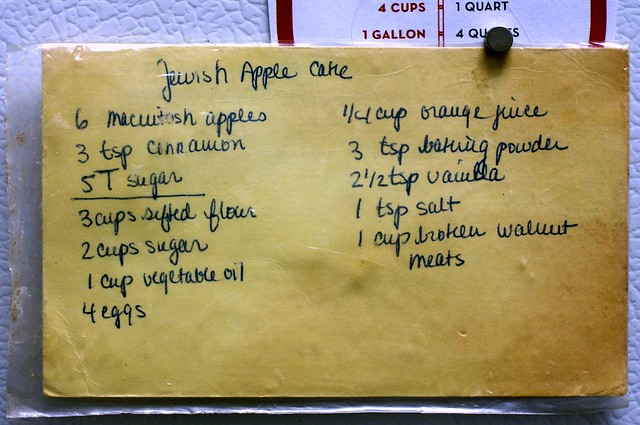 4 CUPS = 1 QUART
1 GALLON = 4 QUARTS
Jewish Apple Cake
6 Macintosh apples
3 tsp Cinnamon
5 T sugar
3 cups sifted flour
2 cups sugar
1 cup vegetable oil
4 eggs
1/4 cup orange juice
3 tsp baking powder
2 1/2 tsp vanilla
1 tsp salt
1 cup broken walnut
meats